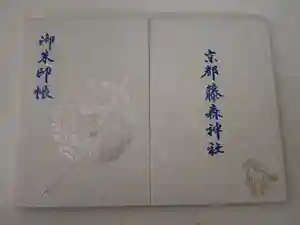 京都 藤森神社
御朱印帳